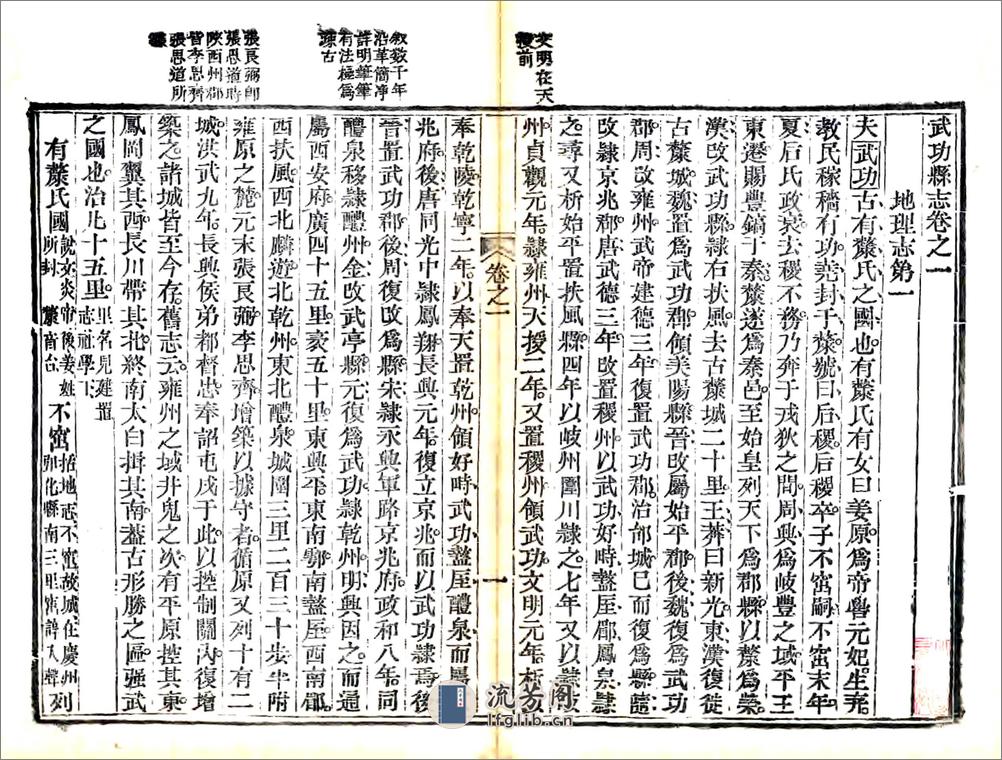 武功縣志卷之一
地理志第一
夫武功古有藜氏之國也有藜氏有女曰姜原爲帝嚳元妃生堯
教民稼穡有功堯封于藜號曰后稷后稷卒子不窋嗣不窋末年
夏后氏政衰去稷不務乃奔于戎狄之間周興爲岐豐之域平王
東遷賜豐鎬于秦藜遂爲秦邑至始皇列天下爲郡縣以藜爲
漢改武功縣隸右扶風去古藜城二十里王莽曰新光東漢復徙
古藜城魏置爲武功郡領美陽縣晉改屬始平郡後魏復爲武功
郡周改雍州武帝建德三年復置武功郡治郿城已而復爲縣
改隸京兆郡唐武德三年改置稷州以武功好畤盩厔郿鳳泉隸
之尋又析始平置扶風縣四年以岐州圍川隸之七年又以隸岐
州貞觀元年隸雍州天授二年又置稷州領武功文明元年析
卷之一
一
奉乾陵乾寧二年以奉天置乾州領好畤武功盩厔醴泉而屬
兆府後唐同光中隸鳳翔長興元年復立京兆而以武功隸焉後
晉置武功郡後周復改爲縣宋隸永興軍路京兆府政和八年同
醴泉移隸醴州金改武亭縣元復爲武功隸乾州明興因之而通
屬西安府廣四十五里袤五十里東興平東南鄠南盩厔西南郿
西扶風西北麟遊北乾州東北醴泉城圍三里二百三十步半附
雍原之麓元末張良弼李思齊增築以據守者循原又列十有二
城洪武九年長興侯弟都督忠奉詔屯戍于此以控制關內復增
築之諸城皆至今存舊志云雍州之域井鬼之次有平原控其東
鳳岡翼其西長川帶其北終南太白揖其南蓋古形勝之區強武
之國也治凡十五里里名見建置志社學下
有藜氏國說文炎帝後姜姓所封藜音台不窋括地志不窋故城在慶州弘化縣南三里窋諱入聲列
文明在天授前
叙數千年
沿革簡净
詳明筆筆
有法極爲
張良弼卽
張思道時
陝西州郡
皆李思齊
張思道所
流芳阁
lfglib.cn